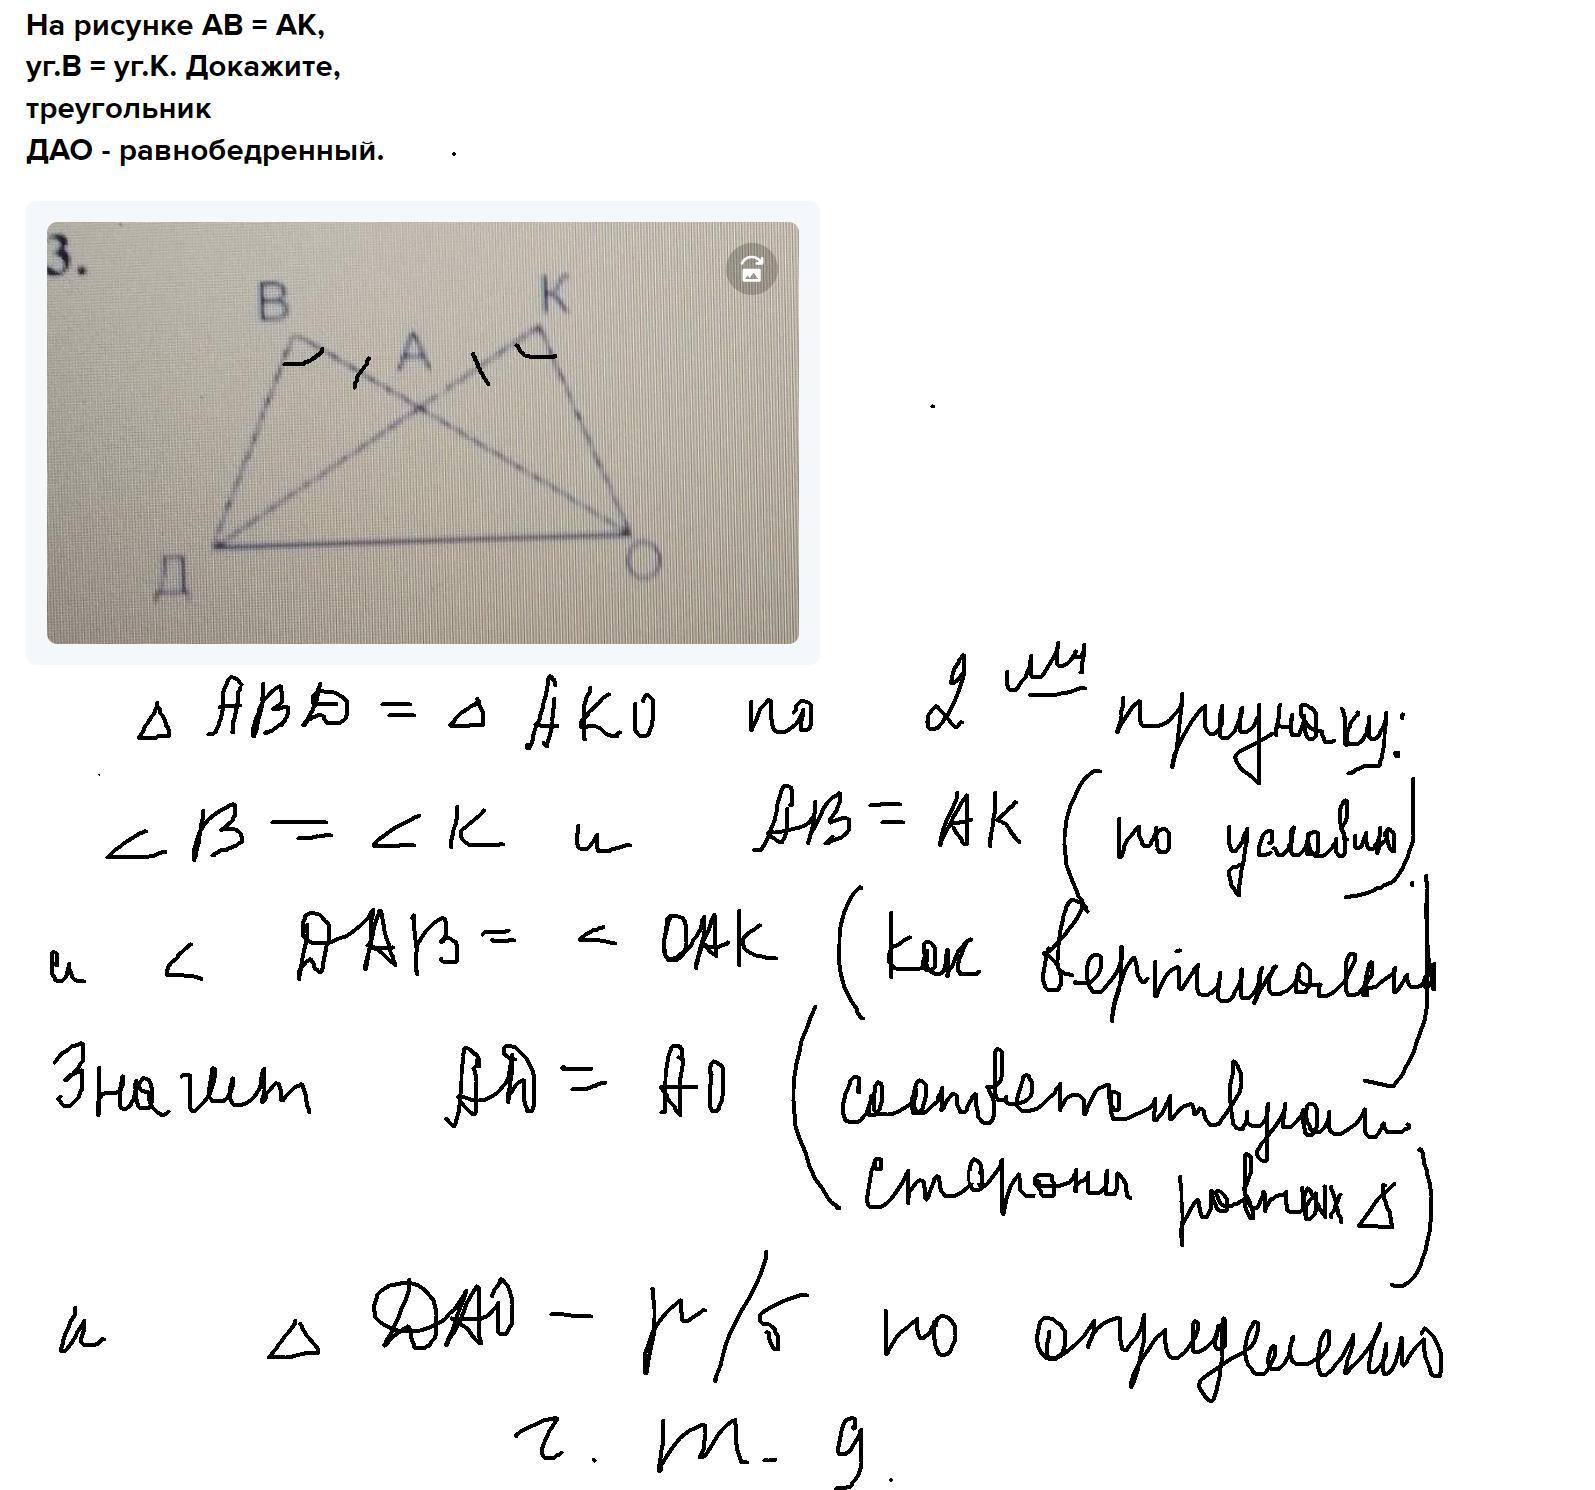 На рисунке АВ = АК,
уг.В = уг.К. Докажите,
треугольник
ДАО - равнобедренный.
3.
В К
А
Д О
△ ABD = △ AKO по 2 му признаку:
∠ B = ∠ K и AB = AK (по условию)
и ∠ DAB = ∠ OAK (как вертикальн)
Значит AD = AO (соответствующи
стороны равных △)
и △ DAO - р/б по определению
ч. т. д.